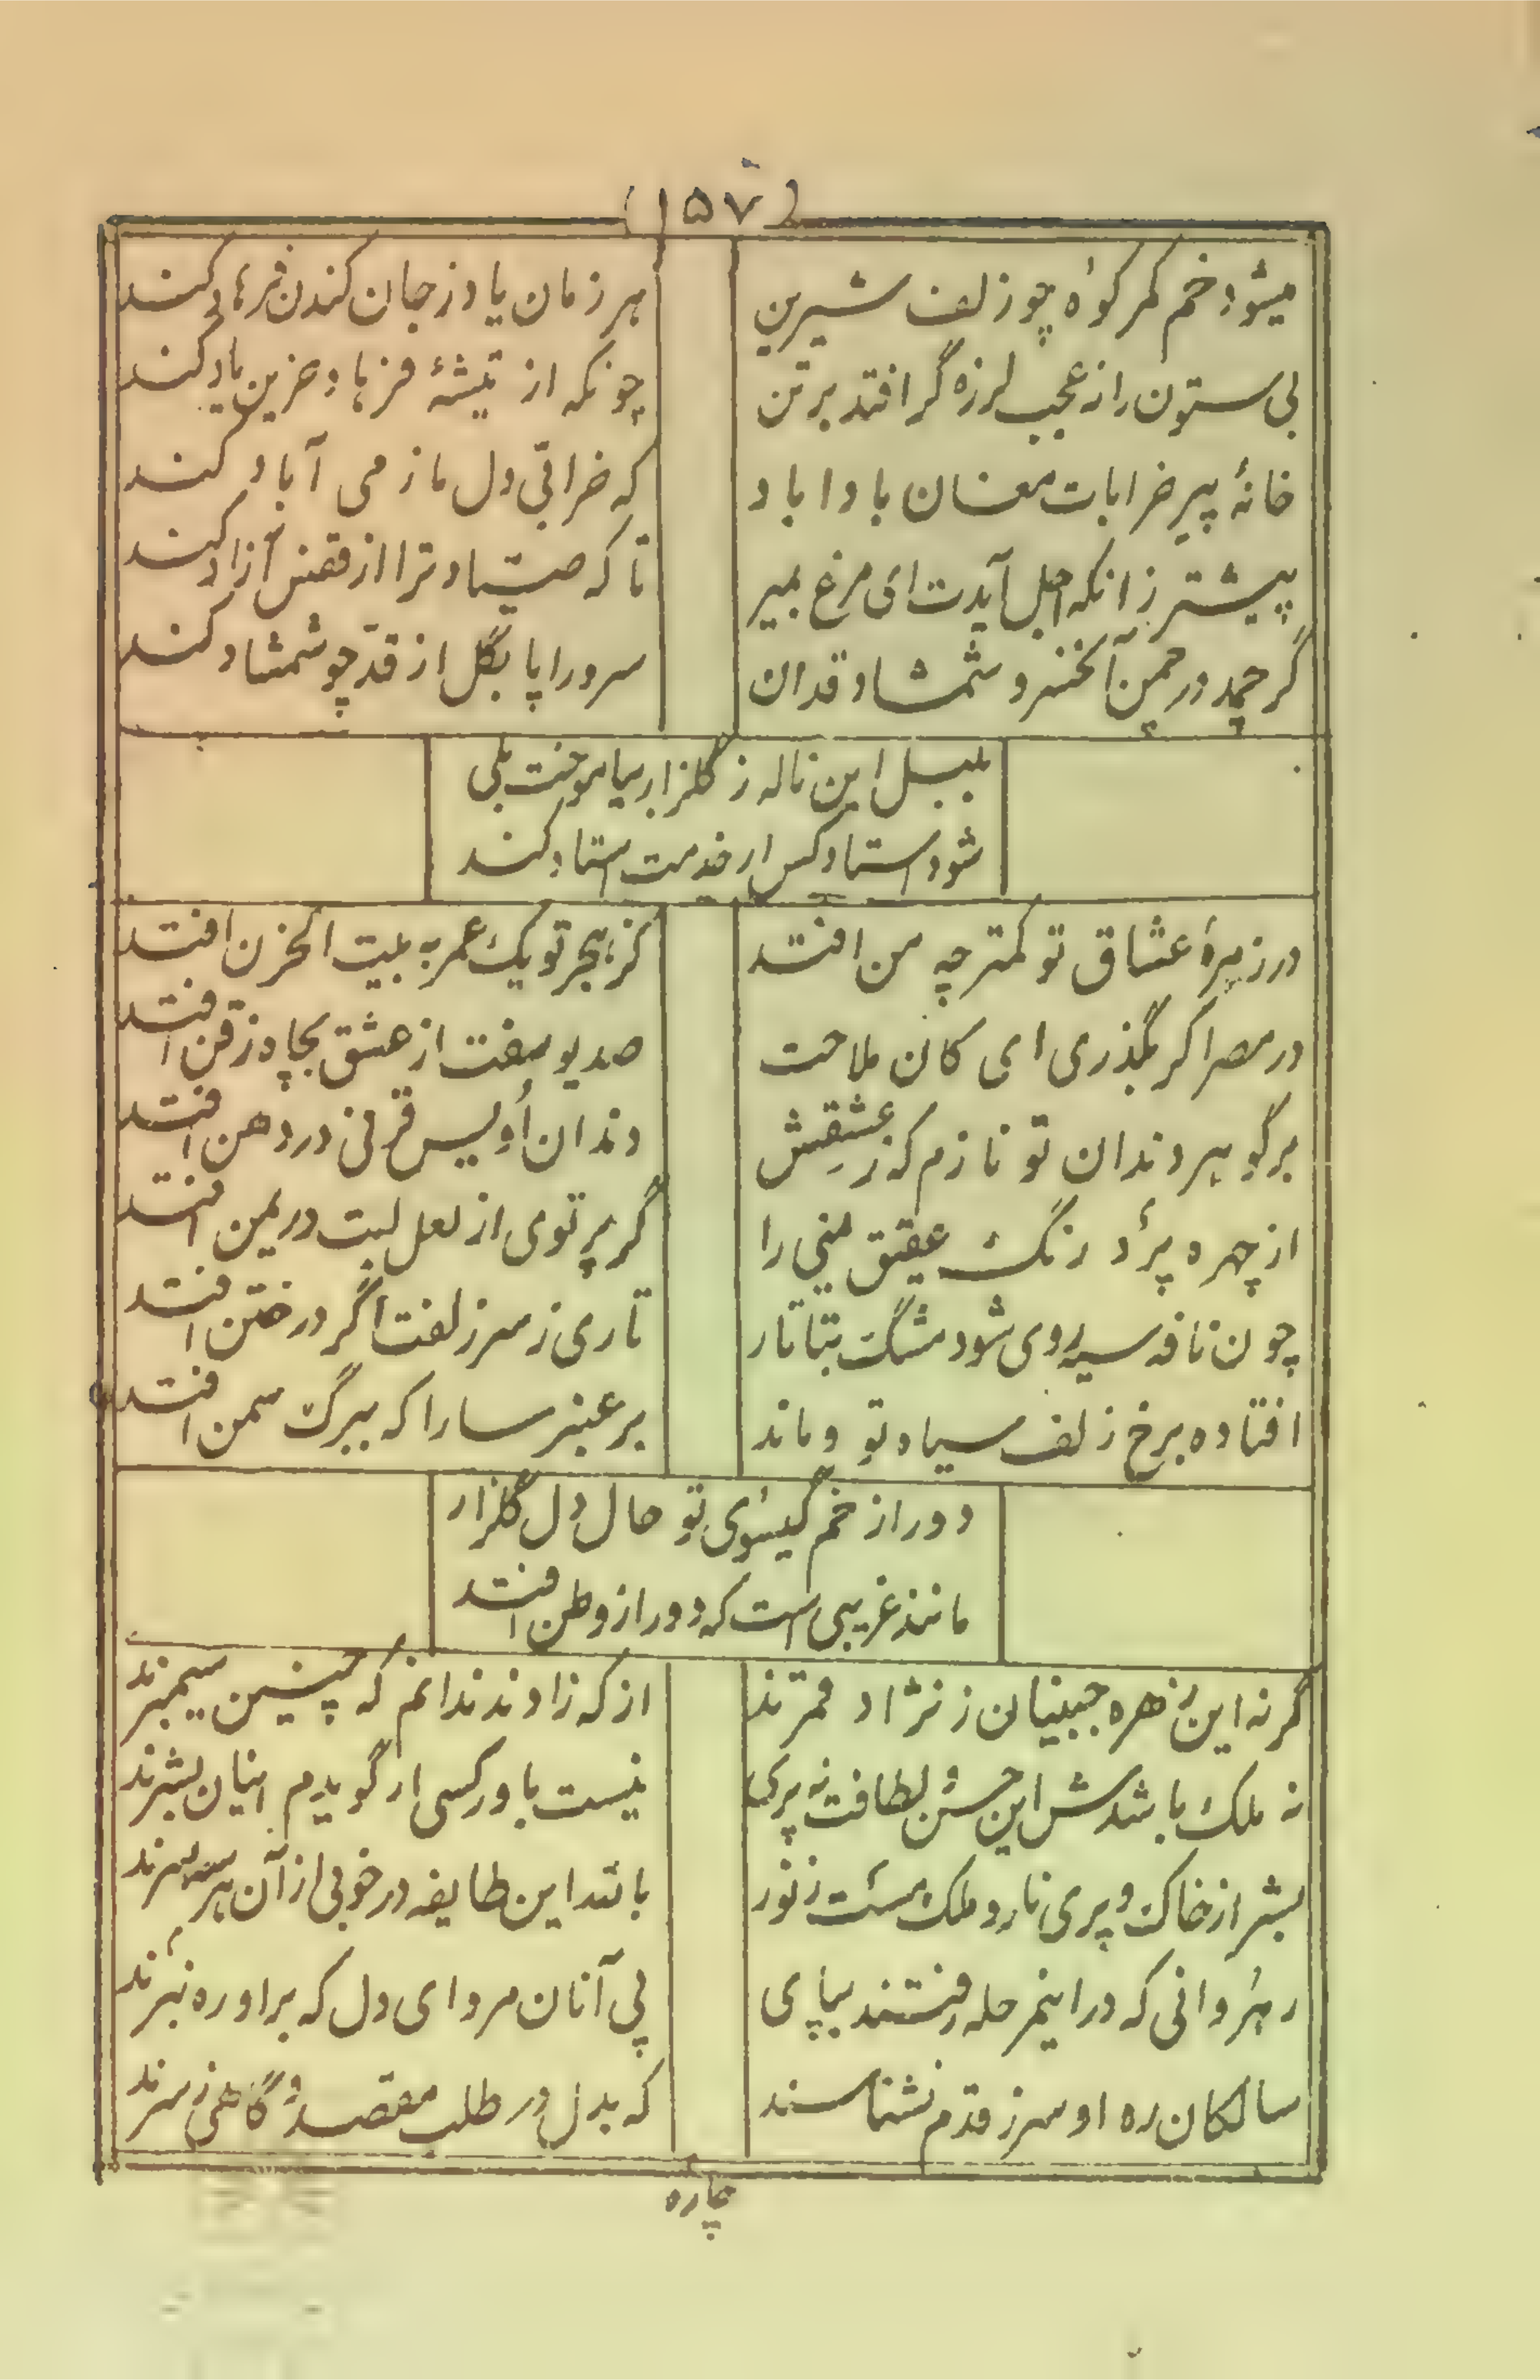 (۱۵۷)
میشود خم کمر کوه چو زلف شیرین
هر زمان یاد ز جان کندن فرهاد کند
بی ستون را نه عجب لرزه گر افتد بر تن
چونکه از تیشهٔ فرهاد حزین یاد کند
خانهٔ پیر خرابات مغان باد اباد
که خرابی دل ما ز می آباد کند
پیشتر زانکه اجل آیدت ای مرغ بمیر
تا که صیاد ترا از قفس آزاد کند
گر چمد در چمن آنخسرو شمشاد قدان
سرو را پا بگل از قدّ چو شمشاد کند
بلبل این ناله ز گلزار بیاموخت بلی
شود استاد کس ار خدمت استاد کند
در زمرهٔ عشاق تو کمتر چه من افتد
کز هجر تو یک عمر به بیت الحزن افتد
در مصر اگر بگذری ای کان ملاحت
صد یوسفت از عشق بچاه ذقن افتد
بر گوهر دندان تو نازم که ز عشقش
دندان اُویس قرنی در دهن افتد
از چهره پرد رنگ عقیق یمنی را
گر پرتوی از لعل لبت در یمن افتد
چون نافه سیه روی شود مشگ بتاتار
تاری ز سر زلفت اگر در ختن افتد
افتاده برخ زلف سیاه تو و ماند
بر عنبر سارا که ببرگ سمن افتد
دور از خم گیسوی تو حال دل گلزار
مانند غریبی است که دور از وطن افتد
گر نه این زهره جبینان ز نژاد قمرند
از که زادند ندانم که چنین سیمبرند
نه ملک باشدش این حسن و لطافت نه پری
نیست باور کسی ار گویدم اینان بشرند
بشر از خاک و پری نار و ملک هست ز نور
باشد این طایفه در خوبی از آن هر سه سرند
رهروانی که در اینمرحله رفتند بپای
پی آنان مرو ای دل که براو ره نبرند
سالکان ره او سر ز قدم نشناسند
که بدل در طلب مقصد و گاهی ز سرند
چاره